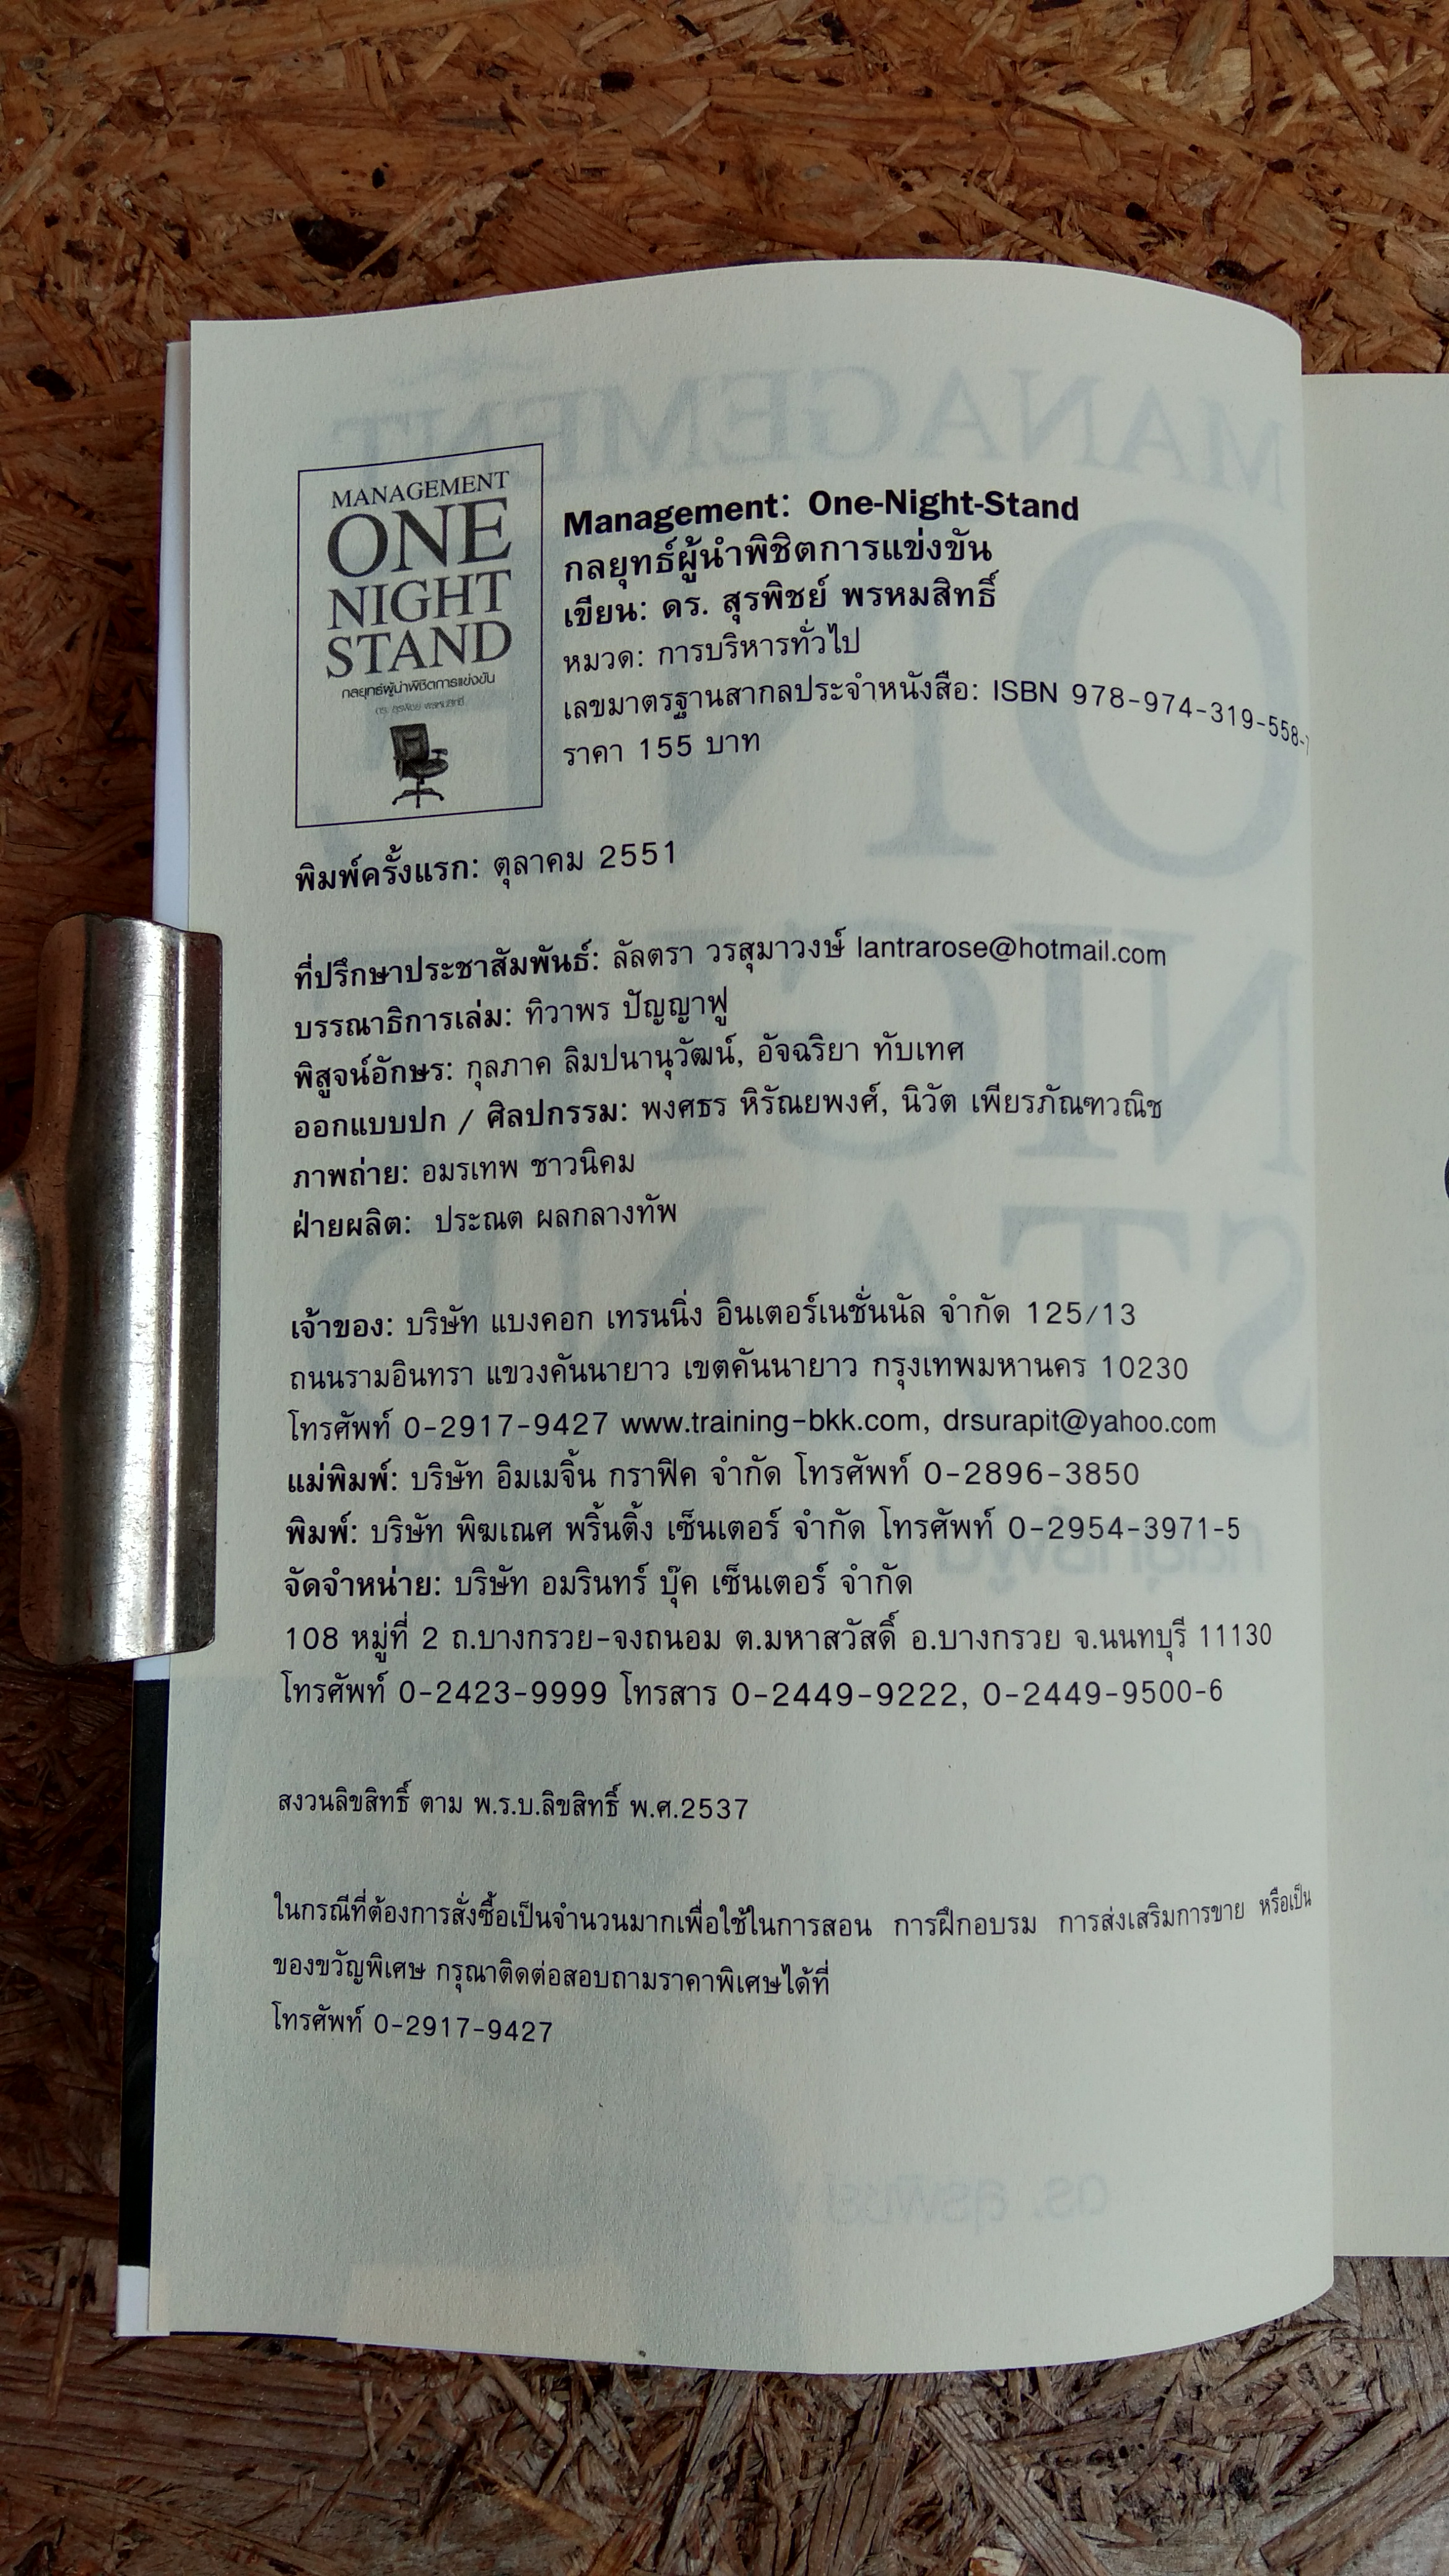 MANAGEMENT
ONE
NIGHT
STAND
กลยุทธ์ผู้นำพิชิตการแข่งขัน
ดร. สุรพิชย์ พรหมสิทธิ์
Management: One-Night-Stand
กลยุทธ์ผู้นำพิชิตการแข่งขัน
เขียน: ดร. สุรพิชย์ พรหมสิทธิ์
หมวด: การบริหารทั่วไป
เลขมาตรฐานสากลประจำหนังสือ: ISBN 978-974-319-558-
ราคา 155 บาท
พิมพ์ครั้งแรก: ตุลาคม 2551
ที่ปรึกษาประชาสัมพันธ์: ลัลตรา วรสุมาวงษ์ lantrarose@hotmail.com
บรรณาธิการเล่ม: ทิวาพร ปัญญาฟู
พิสูจน์อักษร: กุลภาค ลิมปนานุวัฒน์, อัจฉริยา ทับเทศ
ออกแบบปก / ศิลปกรรม: พงศธร หิรัณยพงศ์, นิวัต เพียรภัณฑวณิช
ภาพถ่าย: อมรเทพ ชาวนิคม
ฝ่ายผลิต: ประณต ผลกลางทัพ
เจ้าของ: บริษัท แบงคอก เทรนนิ่ง อินเตอร์เนชั่นนัล จำกัด 125/13
ถนนรามอินทรา แขวงคันนายาว เขตคันนายาว กรุงเทพมหานคร 10230
โทรศัพท์ 0-2917-9427 www.training-bkk.com, drsurapit@yahoo.com
แม่พิมพ์: บริษัท อิมเมจิ้น กราฟิค จำกัด โทรศัพท์ 0-2896-3850
พิมพ์: บริษัท พิฆเณศ พริ้นติ้ง เซ็นเตอร์ จำกัด โทรศัพท์ 0-2954-3971-5
จัดจำหน่าย: บริษัท อมรินทร์ บุ๊ค เซ็นเตอร์ จำกัด
108 หมู่ที่ 2 ถ.บางกรวย-จงถนอม ต.มหาสวัสดิ์ อ.บางกรวย จ.นนทบุรี 11130
โทรศัพท์ 0-2423-9999 โทรสาร 0-2449-9222, 0-2449-9500-6
สงวนลิขสิทธิ์ ตาม พ.ร.บ.ลิขสิทธิ์ พ.ศ.2537
ในกรณีที่ต้องการสั่งซื้อเป็นจำนวนมากเพื่อใช้ในการสอน การฝึกอบรม การส่งเสริมการขาย หรือเป็น
ของขวัญพิเศษ กรุณาติดต่อสอบถามราคาพิเศษได้ที่
โทรศัพท์ 0-2917-9427